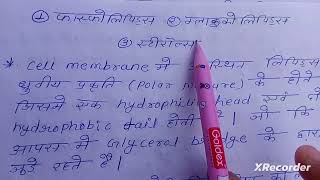 ① फास्फोलिपिड्स ② ग्लाइको लिपिड्स
③ स्टीरॉल्स
* Cell membrane में स्थित लिपिड्स
ध्रुवीय प्रकृति (Polar nature) के होते
जिसमें एक hydrophilic head एवं
hydrophobic tail होती है। जो कि
आपस में Glycerol bridge के द्वारा
जुड़े रहते है।
Goldex
XRecorder